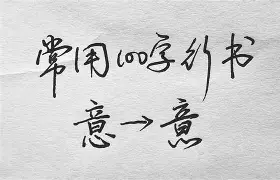 常用100字行书
意→意